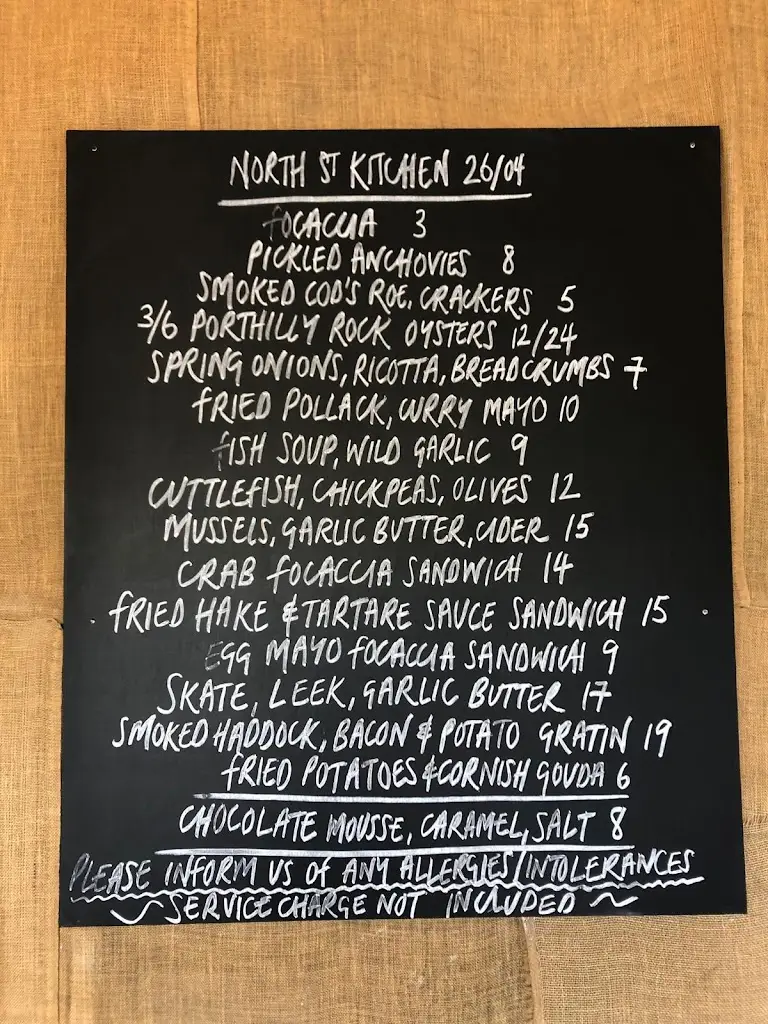 NORTH ST KITCHEN 26/04
FOCACCIA 3
PICKLED ANCHOVIES 8
SMOKED COD'S ROE, CRACKERS 5
3/6 PORTHILLY ROCK OYSTERS 12/24
SPRING ONIONS, RICOTTA, BREADCRUMBS 7
FRIED POLLACK, CURRY MAYO 10
FISH SOUP, WILD GARLIC 9
CUTTLEFISH, CHICKPEAS, OLIVES 12
MUSSELS, GARLIC BUTTER, CIDER 15
CRAB FOCACCIA SANDWICH 14
FRIED HAKE & TARTARE SAUCE SANDWICH 15
EGG MAYO FOCACCIA SANDWICH 9
SKATE, LEEK, GARLIC BUTTER 17
SMOKED HADDOCK, BACON & POTATO GRATIN 19
FRIED POTATOES & CORNISH GOUDA 6
CHOCOLATE MOUSSE, CARAMEL, SALT 8
PLEASE INFORM US OF ANY ALLERGIES/INTOLERANCES
~ SERVICE CHARGE NOT INCLUDED ~